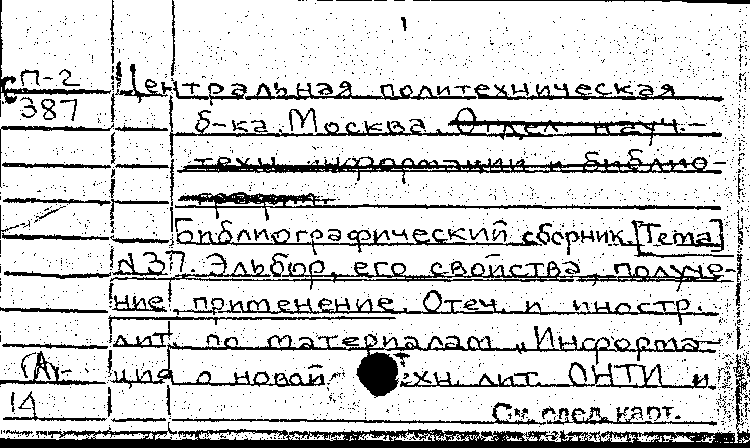 1
П-2
387
Центральная политехническая
б-ка. Москва. Отдел науч.-
техн. информации и библио-
графии.
Библиографический сборник. [Тема]
№37. Эльбор, его свойства, получе-
ние, применение. Отеч. и иностр.
лит. по материалам „Информа-
ция о новой техн. лит. ОНТИ и
14
См. след. карт.